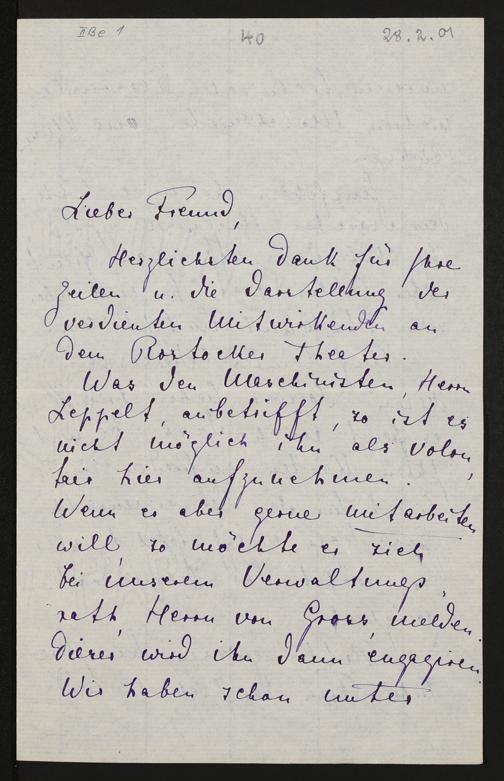 II Be 1
40
28.2.01
Lieber Freund,
Herzlichsten Dank für Ihre
Zeilen u. die Darstellung der
verdienten Mitwirkenden an
dem Rostocker Theater.
Was den Maschinisten, Herrn
Leppelt, anbetrifft, so ist es
nicht möglich ihn als Volon,
tair hier aufzunehmen.
Wenn er aber gerne mitarbeiten
will, so möchte er sich
bei unserem Verwaltungs
rath, Herrn von Gross, melden.
dieser wird ihn dann engagiren.
Wir haben schon unter